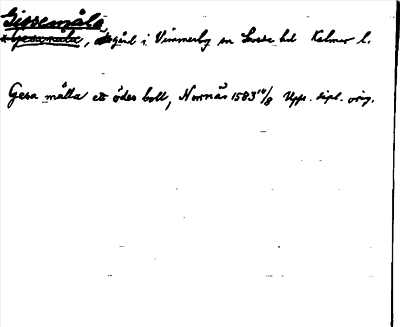 Gissemåla
*Gesamåla, ödegård i Vimmerby sn Sevede hd Kalmar l.
Gesa målla ett öde boll, Nornäs 1583 10/8 Upps. dipl. orig.